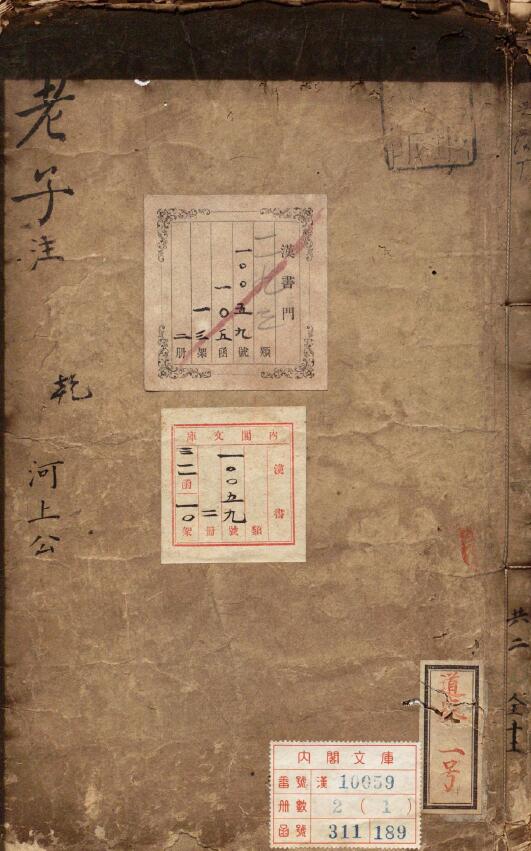 老子注
乾
河上公
漢書門
二九三
類
一〇〇五九
號
一〇五
函
一三
架
二
冊
內閣文庫
漢書
類
一〇〇五九
號
二
冊
三二
函
一〇
架
共二
道
一号
內閣文庫
番號 漢 10059
冊數 2 (1)
函號 311 189